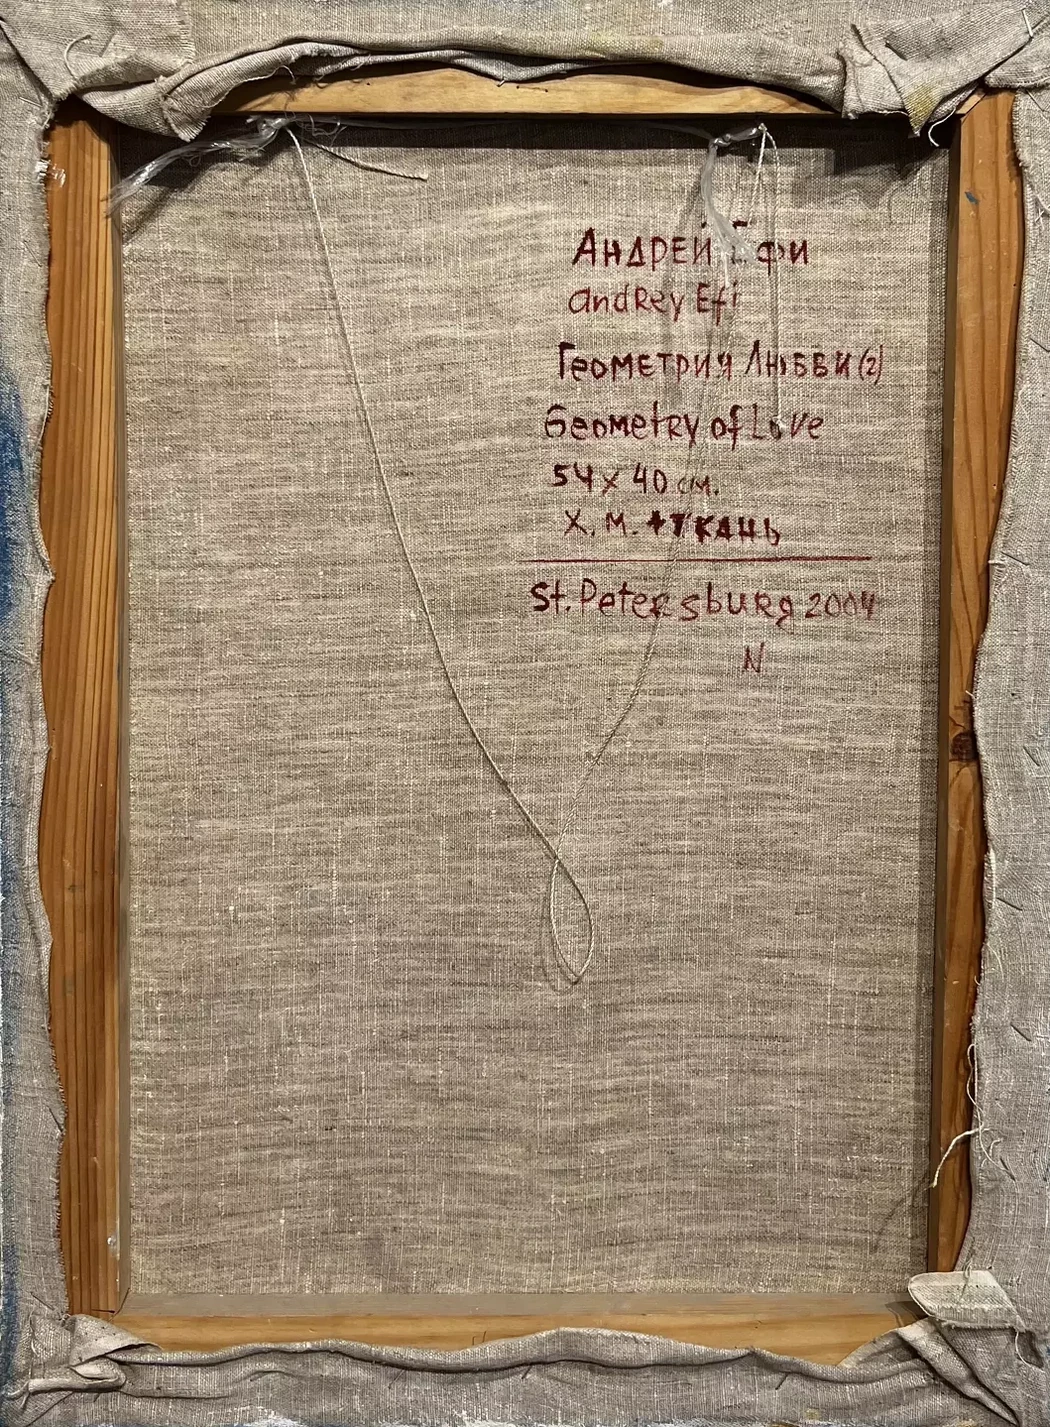 Андрей Ефи
andRey Efi
Геометрия Любви (2)
Geometry of Love
54 x 40 см.
Х. М. + ткань
St. Petersburg 2004
N